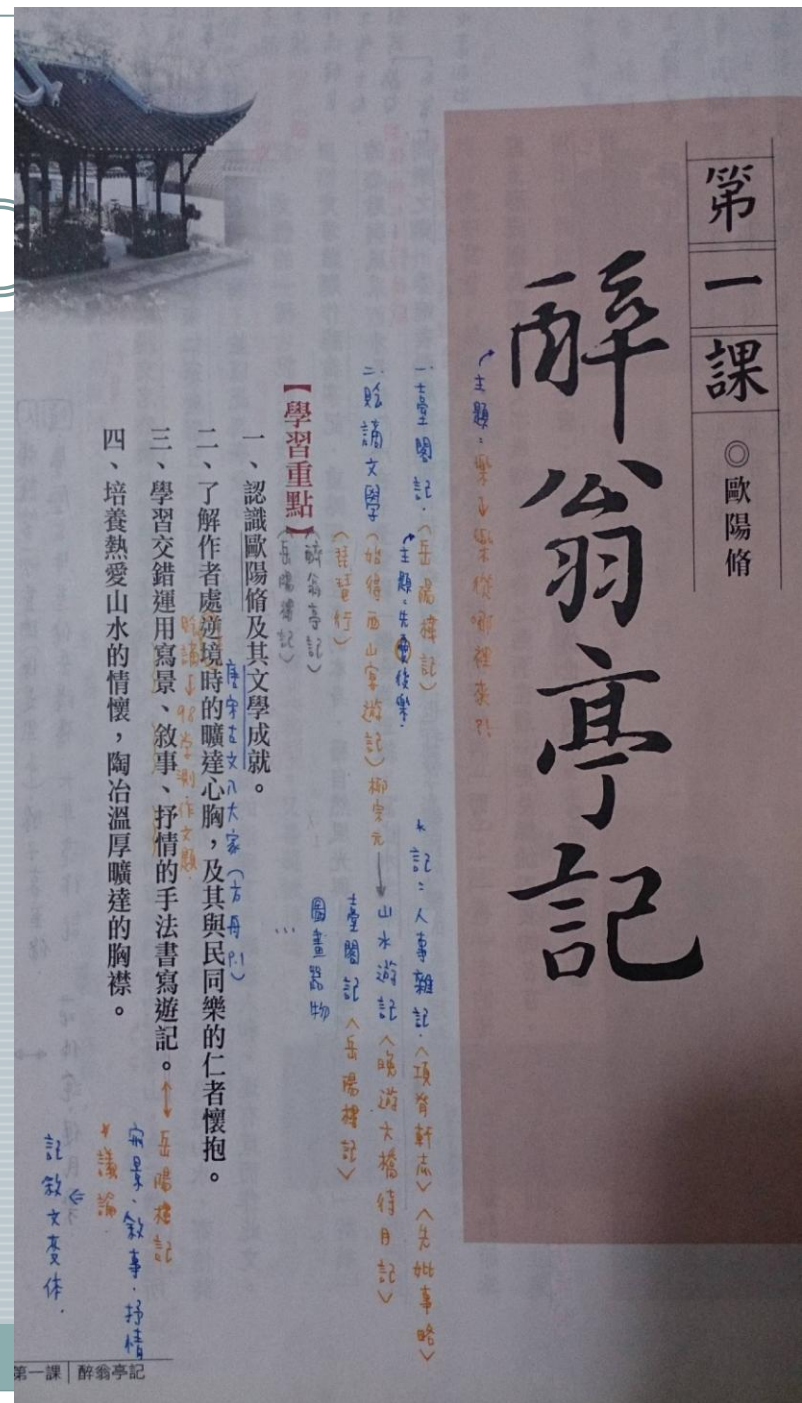 第一課
◎歐陽脩
醉翁亭記
主題：樂→樂從哪裡來?!
一、臺閣記：〈岳陽樓記〉
主題：先憂後樂
二、貶謫文學〈始得西山宴遊記〉柳宗元
〈琵琶行〉
〈醉翁亭記〉
〈岳陽樓記〉
*記：人事雜記：〈項脊軒志〉〈先妣事略〉
山水遊記〈晚遊六橋待月記〉
臺閣記〈岳陽樓記〉
圖畫器物
…
【學習重點】
一、認識歐陽脩及其文學成就。
唐宋古文八大家(方冊P.1)
二、了解作者處逆境時的曠達心胸，及其與民同樂的仁者懷抱。
貶謫→98學測作文題
三、學習交錯運用寫景、敘事、抒情的手法書寫遊記。
↔岳陽樓記
寫景、敘事、抒情
*議論
記敘文變体.
四、培養熱愛山水的情懷，陶冶溫厚曠達的胸襟。
第一課│醉翁亭記